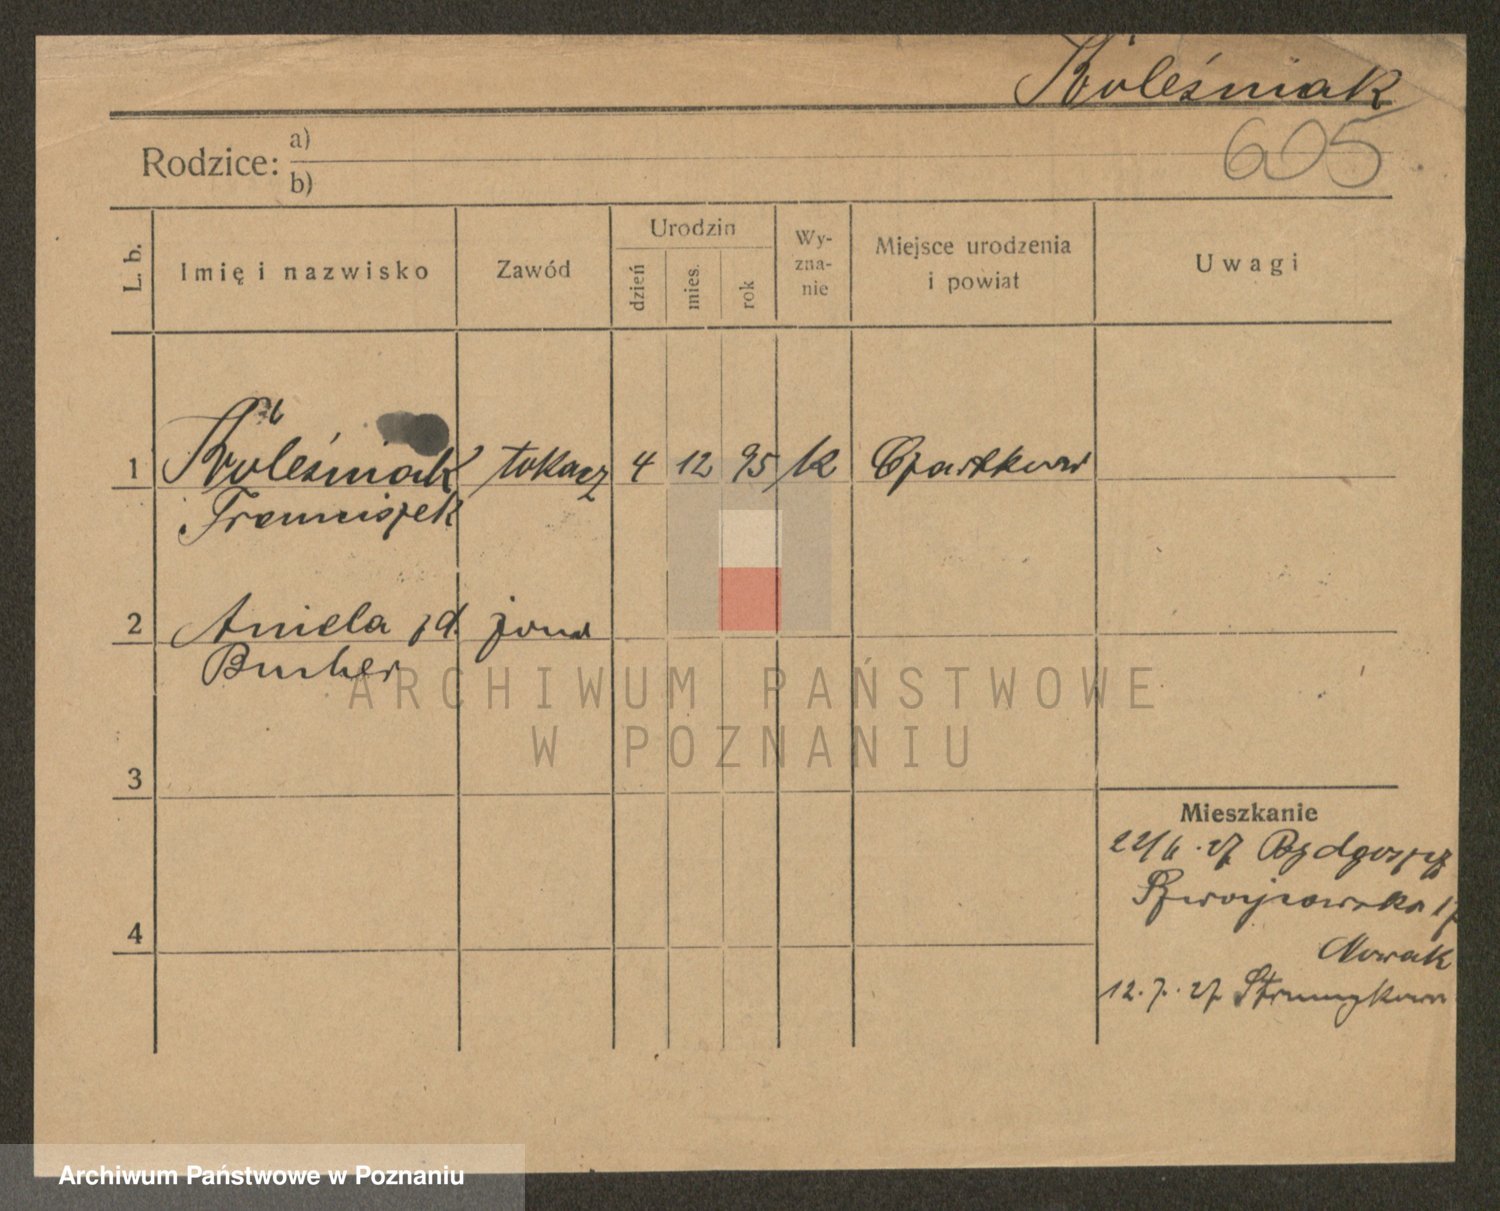 Koleśniak
605
Rodzice: a)
b)
L. b. Imię i nazwisko Zawód Urodzin dzień mies. rok Wy-zna-nie Miejsce urodzenia i powiat Uwagi
1 Koleśniak tokarz 4 12 95 k
Franciszek
2 Aniela żona
3
4
Mieszkanie
22/6.27 Bydgoszcz
17
Nowak
12.7.27
ARCHIWUM PAŃSTWOWE
W POZNANIU
Archiwum Państwowe w Poznaniu